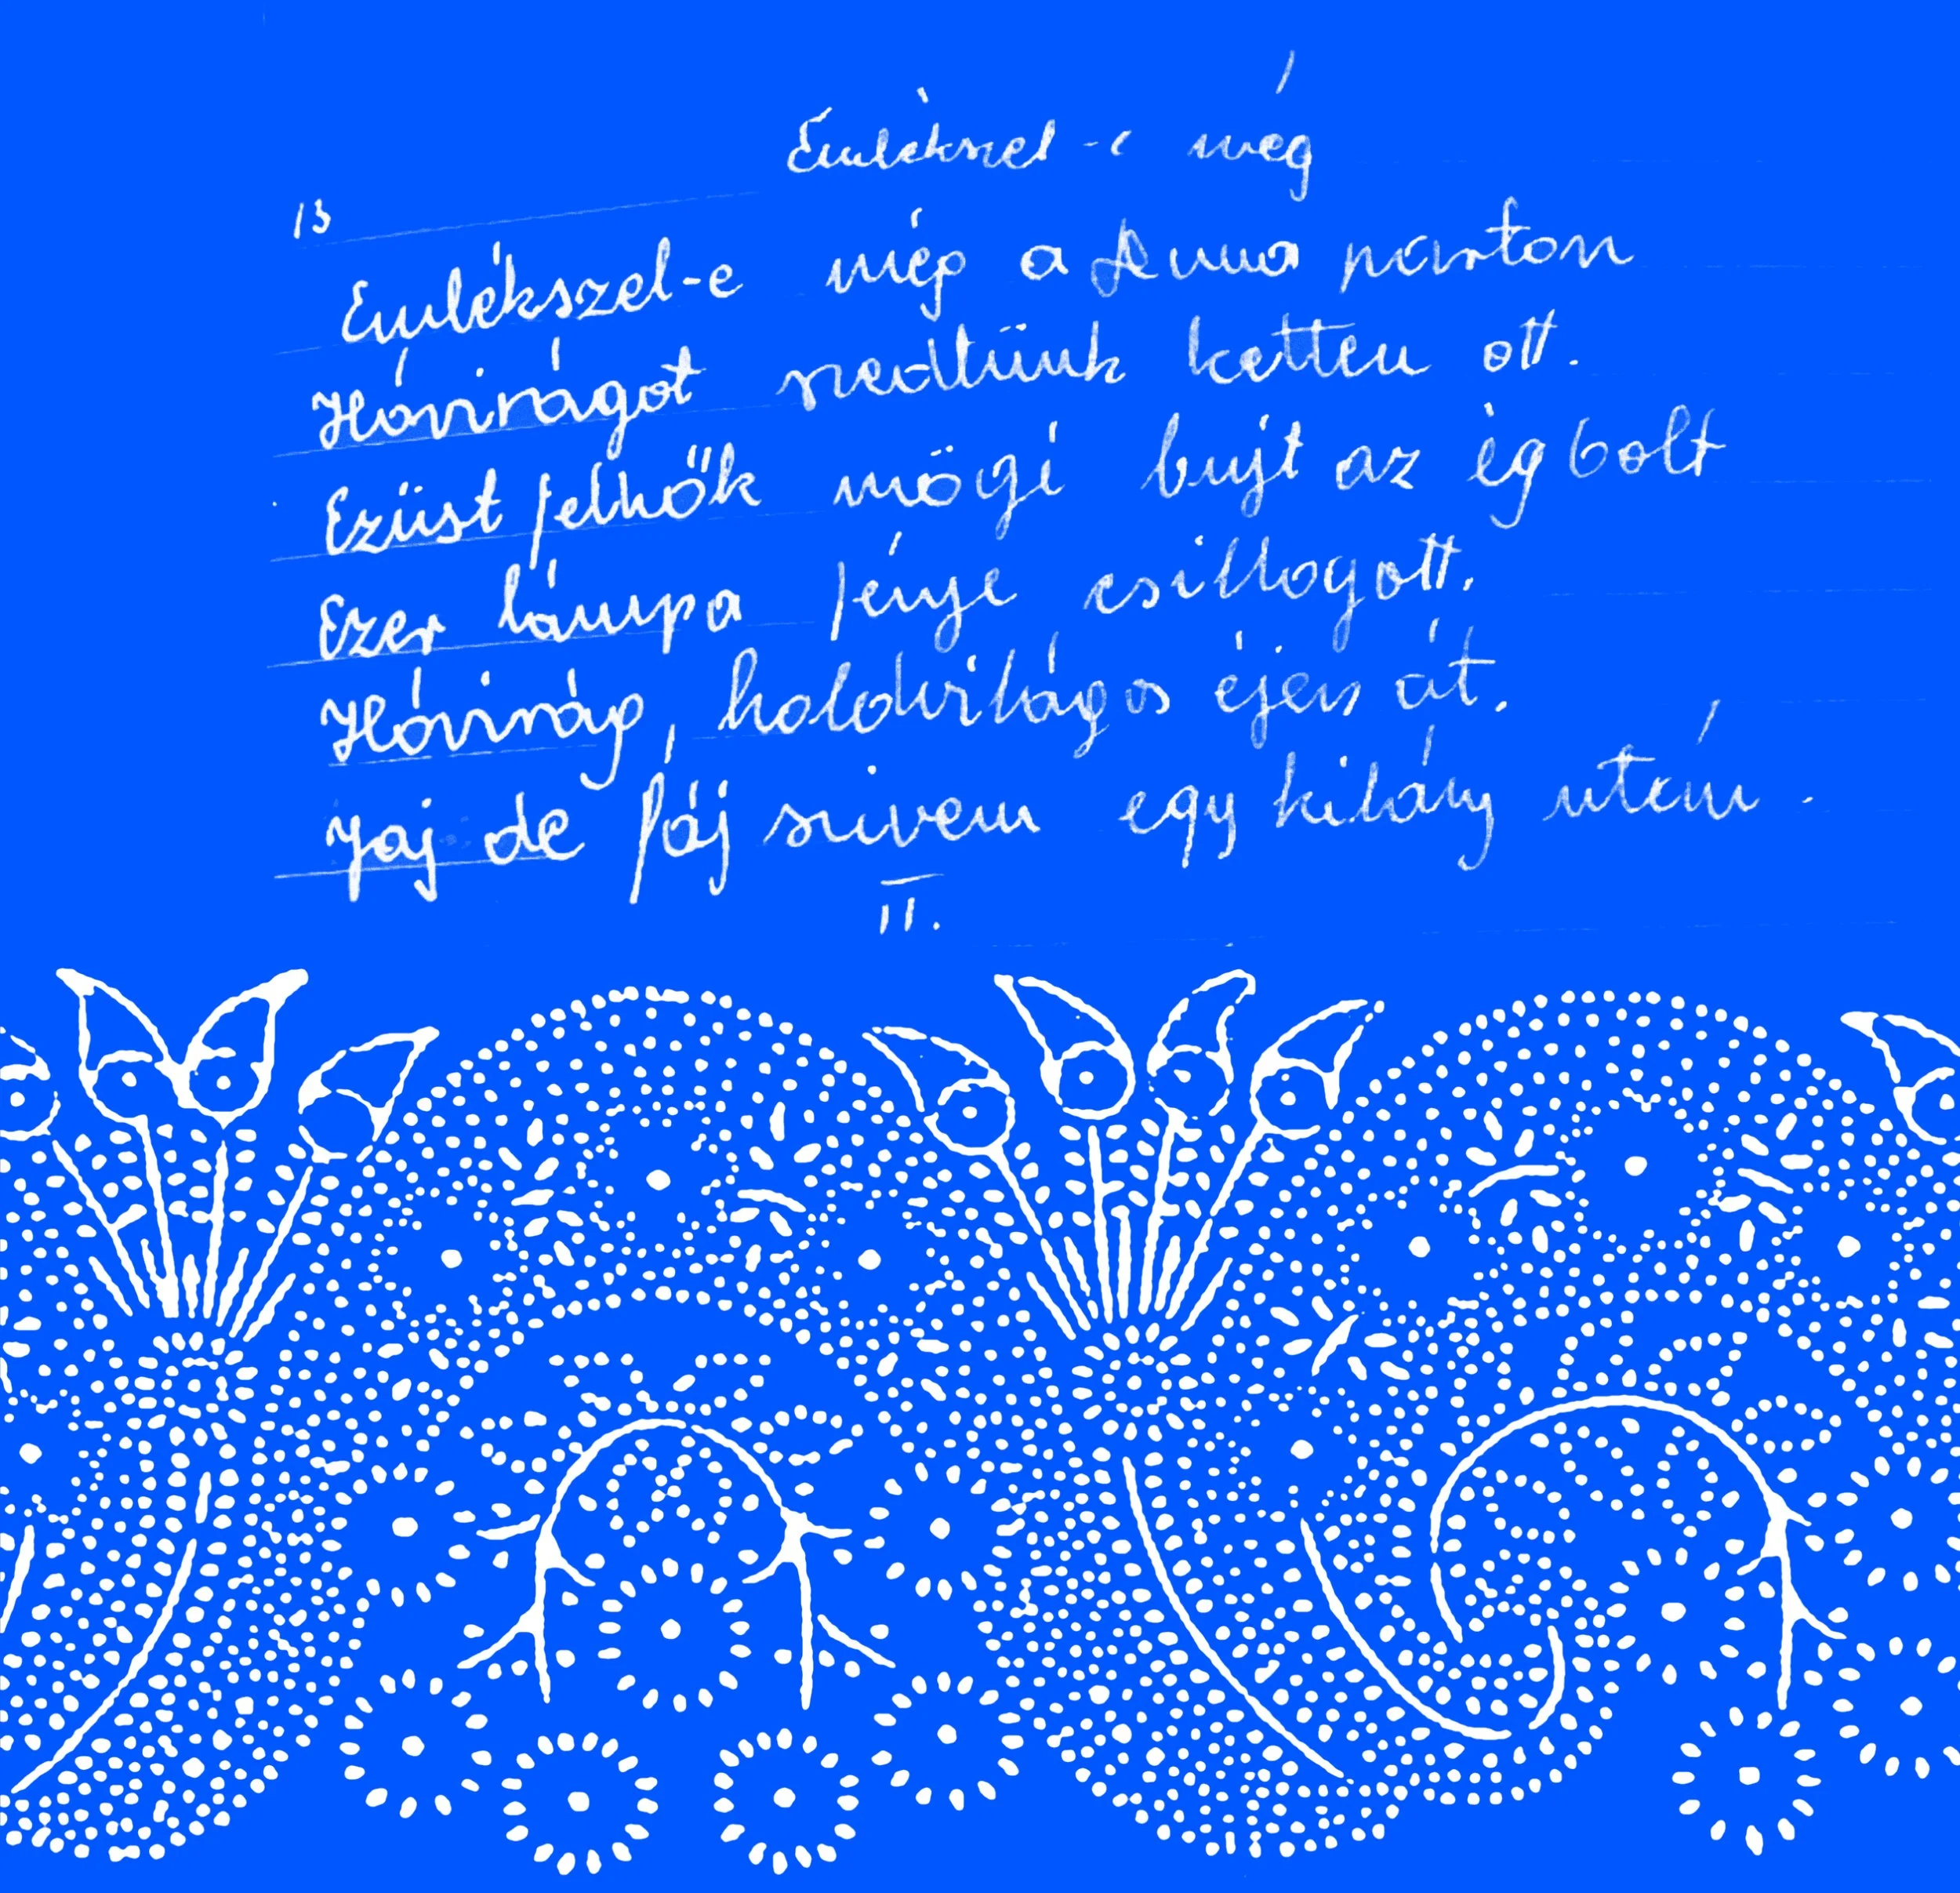 Emlékszel-e még
13
Emlékszel-e még a Duna parton
Hóvirágot szedtünk ketten ott.
Ezüst felhők mögi bujt az ég bolt
Ezer lámpa fénye csillogott.
Hóvirág, holdvilágos éjen át.
Jaj de fáj szivem egy kilány után.
II.